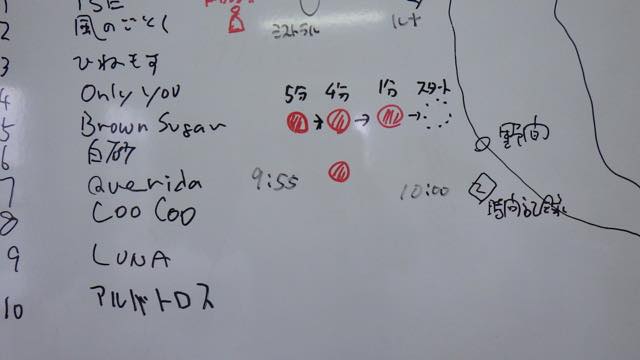 1
2 風のごとく ミストラル ルナ
3 ひねもす
4 Only You 5分 4分 1分 スタート
5 Brown Sugar → → →
6
7 Querida 9:55 10:00 2
8 Coo Coo 時間記録
9 LUNA
10 アルバトロス